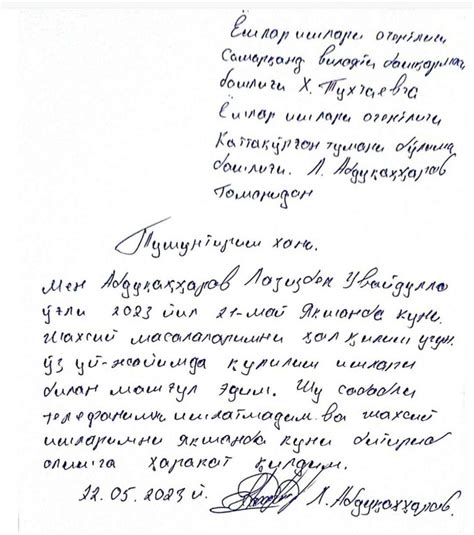 Ёшлар ишлари агентлиги
Самарқанд вилояти бошқармаси
бошлиғи Х. Тухтаевга
Ёшлар ишлари агентлиги
Каттақўрғон тумани бўлими
бошлиғи. Л. Абдуқаҳҳаров
Томонидан
Тушунтириш хати.
Мен Абдуқаҳҳаров Лазизбек Увайдулло
ўғли 2023 йил 21-май Якшанба куни.
шахсий масалаларимни ҳал қилиш учун.
ўз уй-жойимда қурилиш ишлари
билан машғул эдим. Шу сабабли
телефонимни ишлатмадим. ва шахсий
ишларимни якшанба куни битириб
олишга ҳаракат қилдим.
22.05.2023 й. Л. Абдуқаҳҳаров.